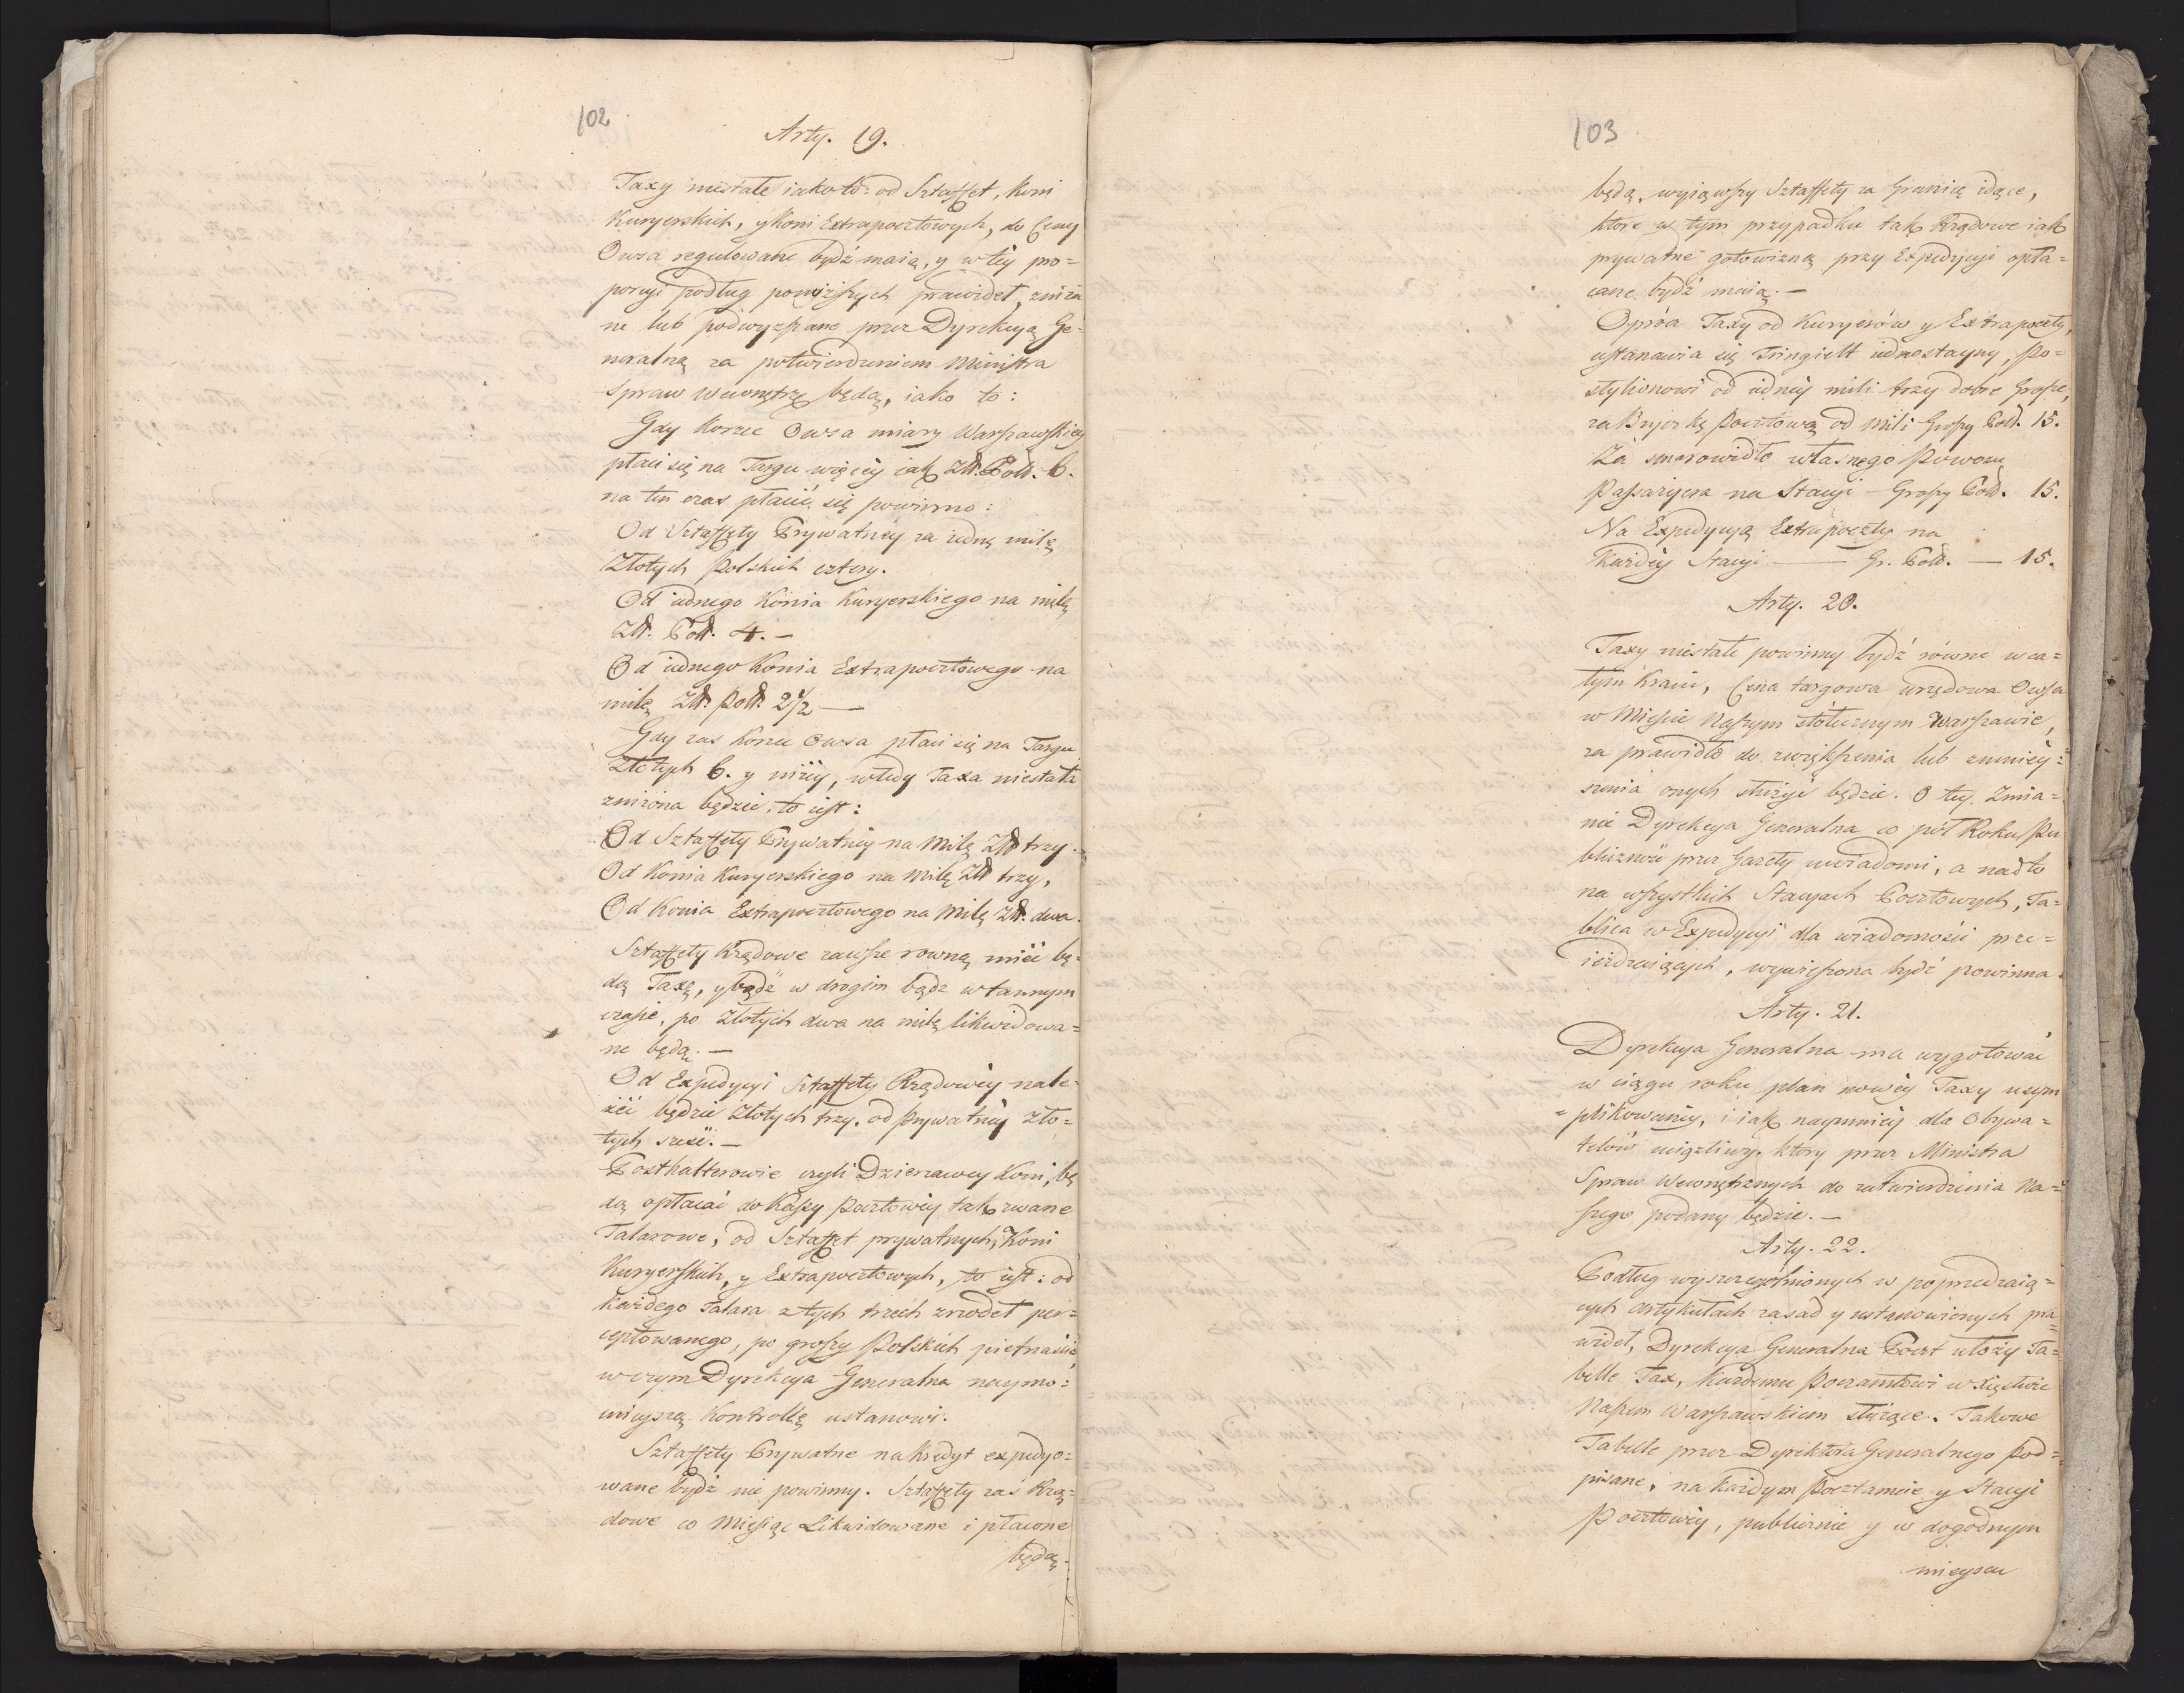 102
Arty. 19.
Taxy niestałe iakoto: od Sztaffet, koni
Kuryerskich, y koni Extrapocztowych, do Ceny
Owsa regulowane bydź maią, y w tey pro=
porcyi podług poniższych prawideł, zniżo
ne lub podwyższane przez Dyrekcyą Ge=
neralną za potwierdzeniem Ministra
Spraw Wewnętrz będą, iako to:
Gdy Korzec Owsa miary Warszawskiey
płaci się na Targu więcey iak Złł. Poll. 6.
na ten czas płacić się powinno:
Od Sztaffety Prywatney za iedną milę
Złotych Polskich cztery.
Od iednego Konia Kuryerskiego na milę
Złł. Poll. 4. —
Od iednego Konia Extrapocztowego na
milę Złł. Poll. 2½ —
Gdy zas Korzec Owsa płaci się na Targu
Złotych 6. y niżey, wtedy Taxa niestała
zniżona będzie, to iest:
Od Sztaffety Prywatney na Milę Złł trzy.
Od Konia Kuryerskiego na Milę Złł trzy,
Od Konia Extrapocztowego na Milę Złł. dwa.
Sztaffety Rządowe zawsze rowną mieć bę=
dą Taxę, y bądź w drogim bądz w tannym
czasie, po Złotych dwa na milę likwidowa=
ne będą. —
Od Expedycyi Sztaffety Rządowey nale=
żeć będzie Złotych trzy. od Prywatney Zło=
tych sześć. —
Posthalterowie czyli Dzierzawcy Koni, bę
dą opłacać do Kassy Pocztowey tak zwane
Talarowe, od Sztaffet prywatnych, Koni
Kuryerskich, y Extrapocztowych, to iest: od
każdego Talara z tych trzech zrodeł per=
ceptowanego, po groszy Polskich piętnaście,
w czym Dyrekcya Generalna naymo=
cnieyszą Kontrollę ustanowi.
Sztaffety Prywatne na kredyt expedyo=
wane bydź nie powinny. Sztaffety zaś Rzą=
dowe co Miesiąc Likwidowane i płacone
będą.
103
będą, wyiąwszy Sztaffety za Granicę idące,
które w tym przypadku tak Rządowe iak
prywatne gotowizną przy Expedycyi opła=
cane bydź maią. —
Oprócz Taxy od Kuryerów y Extrapoczty,
ustanawia się Tringielt iednostayny, Po=
stylionowi od iedney mili trzy dobre Grosze,
za Bryczkę Pocztową od Mili Groszy Poll. 15.
Za smarowidło własnego Powozu
Passażyera na Stacyi — Groszy Poll. 15.
Na Expedycyą Extrapoczty na
Każdey Stacyi — Gr. Poll. — 15.
Arty. 20.
Taxy niestałe powinny bydź równe w ca=
łym Kraiu, Cena targowa urzędowa Owsa
w Mieście Naszym stołecznym Warszawie,
za prawidło do zwiększenia lub zmniey=
szenia onych służyć będzie. O tey Zmia=
nie Dyrekcya Generalna co pół Roku Pu
bliczność przez Gazety uwiadomi, a nadto
na wszystkich Stacyach Pocztowych, Ta=
blica w Expedycyi dla wiadomości prze=
ieżdżaiących, wywieszona bydź powinna.
Arty. 21.
Dyrekcya Generalna ma wygotować
w ciągu roku plan nowey Taxy usym
=plikowaney, i iak naymniey dla Obywa=
telów uciążliwy, który przez Ministra
Spraw Wewnętrznych do zatwierdzenia Na=
szego podany będzie. —
Arty. 22.
Podług wyszczególnionych w poprzedzaią=
cych artykułach zasad y ustanowionych pra=
wideł, Dyrekcya Generalna Poczt ułoży Ta=
belle Tax, każdemu Pocztamtowi w Xięstwie
Naszem Warszawskiem służące. Takowe
Tabelle przez Dyrektora Generalnego Pod=
pisane, na każdym Pocztamcie y Stacyi
Pocztowey, publicznie y w dogodnym
mieyscu